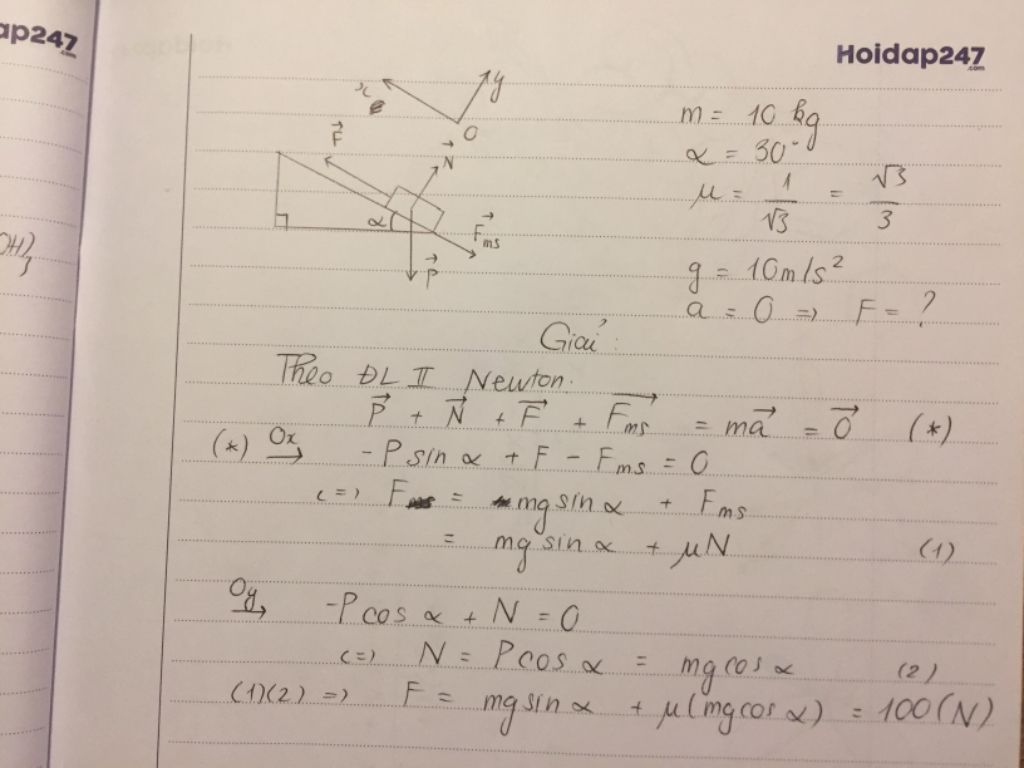 ap247
.com
Hoidap247
.com
OH)3
x
y
O
F⃗
N⃗
α
F⃗ms
P⃗
m = 10 kg
α = 30°
μ = 1/√3 = √3/3
g = 10m/s²
a = 0 => F = ?
Giải:
Theo ĐL II Newton.
P⃗ + N⃗ + F⃗ + F⃗ms = ma⃗ = 0⃗ (*)
(*) Ox→ -Psin α + F - Fms = 0
(=) F = mgsin α + Fms
= mg sin α + μN (1)
Oy→ -Pcos α + N = 0
(=) N = Pcos α = mgcos α (2)
(1)(2) => F = mgsin α + μ(mgcos α) = 100(N)